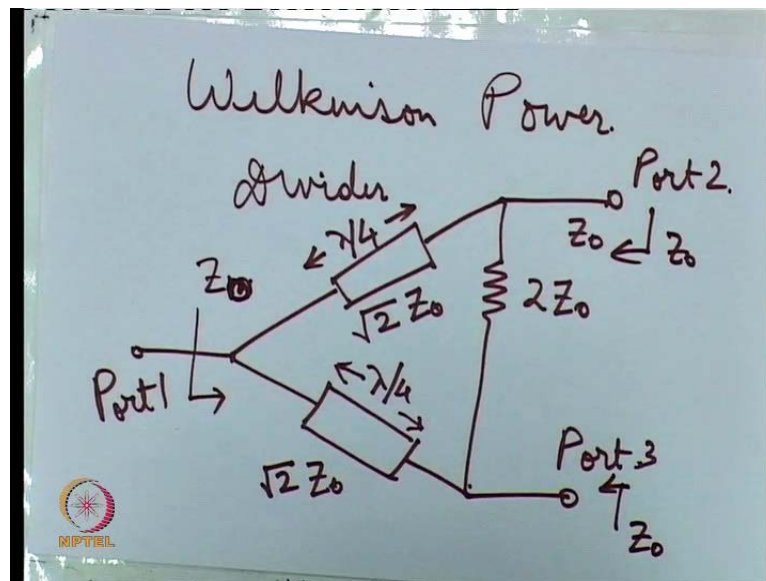 Wilkinson Power.
Divider
Port 2.
λ/4
Z0
Z0
Z0
√2 Z0
2Z0
Port 1
λ/4
√2 Z0
Port.3
Z0
NPTEL